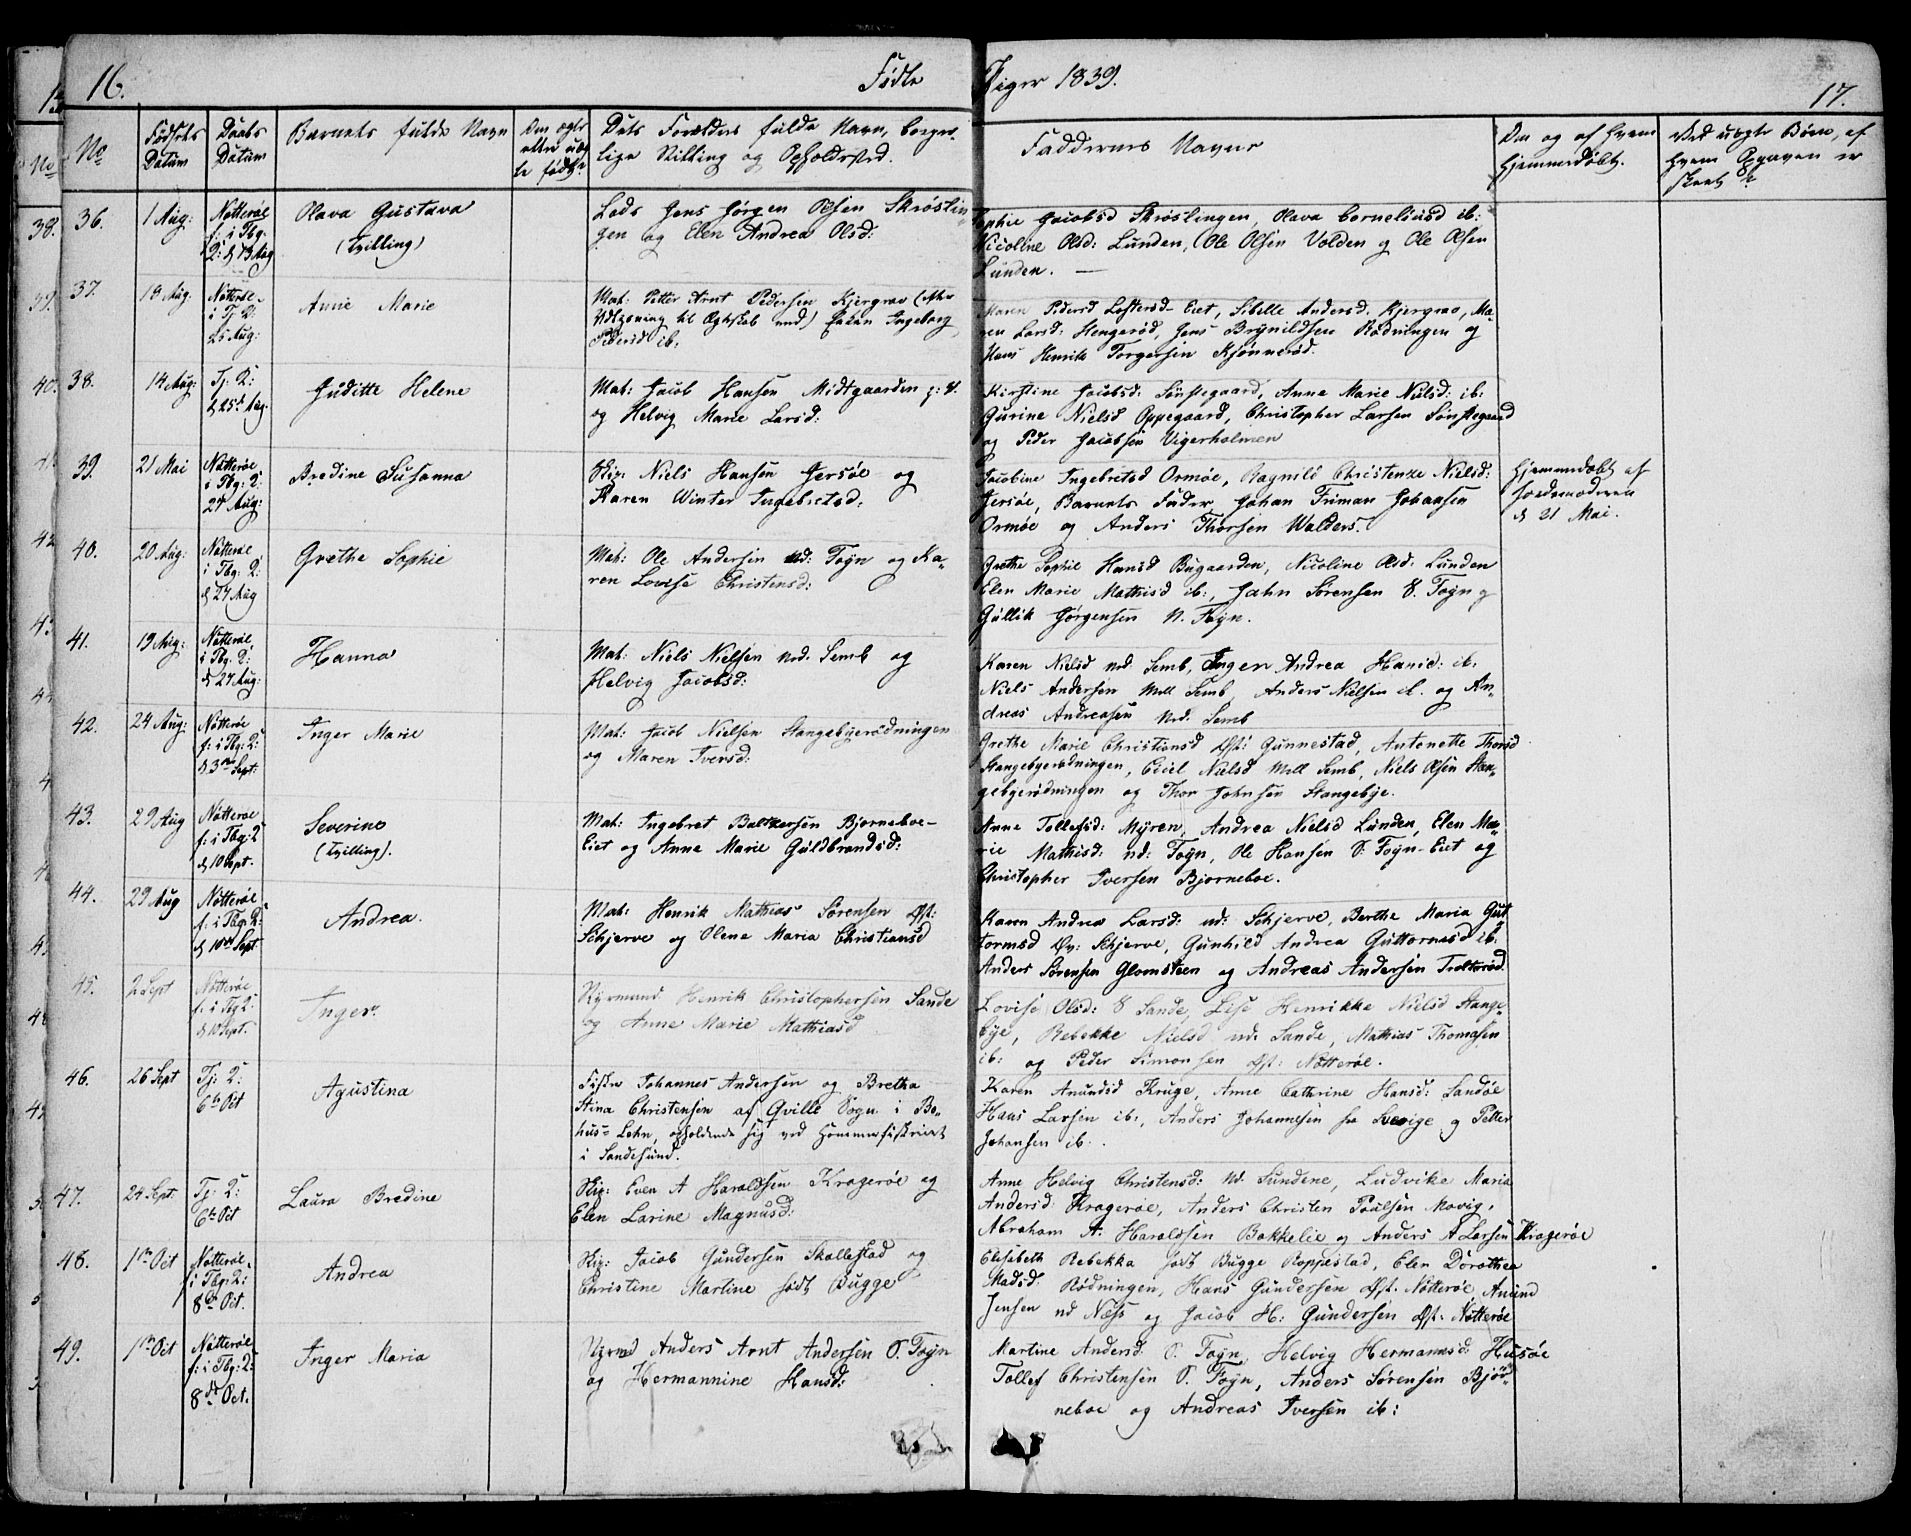 16.
Fødte
Piger 1839.
17.
No
Fødsels Datum
Daabs Datum
Barnets fulde Navn
Om ægte eller uægte født
Dets Forældres fulde Navn, borgerlige Stilling og Opholdssted.
Faddernes Navne
Om og af hvem hjemmedøbt.
Ved uægte Børn, af hvem Opgaven er skeet &c
36.
1 Aug:
Nøtterøe
f: i Tbg:
2: d 13 Aug
Olava Gustava
(tvilling)
Lods Jens Jørgen Olsen Skrøslin-
gen og Elen Andrea Olsd:
Sophie Jacobsd Skrøslingen, Olava Corneliusd ib:
Nicoline Olsd: Lunden, Ole Olsen Volden og Ole Olsen
Lunden.
37.
18 Aug:
Nøtterøe
i Tj 2:
25 Aug:
Anne Marie
Mat: Petter Arnt Pedersen Kjergrav
til Ægteskab med) Ingeborg
Pedersd ib:
Maren Pedersd Eiet, Sibille Andersd. Kjergrav, Ma-
ren Larsd: Hengerød, Jens Brynildsen Rødningen og
Hans Henrik Torgersen Kjønnerød.
38.
14 Aug:
Tj: 2:
d 25d Aug.
Juditte Helene
Mat: Jacob Hansen Midtgaarden
og Helvig Marie Larsd:
Kirstine Jacobsd: Sønstegaard, Anne Marie Nielsd: ib:
Gurine Nielsd Oppegaard, Christopher Larsen Sønstegaard
og Peder Jacobsen Vigerholmen
39.
21 Mai
Nøtterøe
i Tbg: 2:
27 Aug:
Bredine Susanna
Skip: Niels Hansen Jersøe og
Karen Winter Ingebretsd:
Jacobine Ingebretsd Ormøe, Ragnild Christenze Nielsd:
Jersøe, Barnets Fader, Johan Friman Johansen
Ormøe og Anders Thorsen Walders.
Hjemmedøbt af
Jordemoderen
d 21 Mai.
40.
20 Aug:
Nøtterøe
i Tbg: 2:
d 27 Aug
Grethe Sophie
Mat: Ole Andersen nd: Foyn og Ka-
ren Lovise Christensd:
Grethe Sophie Hansd Bugaarden, Nicoline Olsd: Lunden
Elen Marie Mathisd ib:, John Sørensen S. Foyn og
Gullik Jørgensen N. Foyn.
41.
19 Aug:
Nøtterøe
i Tbg: 2:
d 27 Aug:
Hanna
Mat: Niels Nielsen nd. Semb og
Helvig Jacobsd:
Karen Nielsd nd. Semb, Inger Andrea Hansd: ib:
Niels Andersen Mell Semb, Anders Nielsen ib. og An-
dreas Andreasen nd. Semb
42.
24 Aug:
Nøtterøe
f: i Tbg: 2:
d 3die Sept:
Inger Marie
Mat: Jacob Nielsen Stangebyerødningen
og Maren Iversd:
Grethe Marie Christiansd Øst: Gunnestad, Antonette Thorsd
Stangebyerødningen, Eliel Nielsd Mell Semb, Niels Olsen Stan-
gebyerødningen og Thor Johnsen Stangebye.
43.
29 Aug
Nøtterøe
f: i Tbg: 2
d 10 Sept.
Severine
(tvilling).
Mat: Ingebret Baltzersen Bjørneboe-
Eiet og Anna Marie Guldbrandsd:
Anne Tollefsd: Myren, Andrea Nielsd Lunden, Elen Ma-
rie Mathisd: nd: Foyn, Ole Hansen S: Foyn-Eiet og
Christopher Iversen Bjørneboe.
44.
29 Aug
Nøtterøe
f: i Tbg: 2:
d 10de Sept
Andrea.
Mat: Henrik Mathias Sørensen Øst:
Schjerve og Olena Maria Christiansd
Karen Andrea Larsd: nd: Schjerve, Berthe Maria Gut
tormsd Øv: Schjerve, Gunhild Andrea Guttormsd ib:
Anders Sørensen Glomsteen og Andreas Andersen Trolterød.
45.
2 Sept
Nøtterøe
f: i Tbg 2:
d 10 Sept.
Inger
Styrmand Henrik Christophersen Sande
og Anne Marie Mathiasd
Lovise Olsd: S Sande, Lise Henrikke Nielsd Stange-
bye, Rebekke Nielsd nd. Sande, Mathias Thomasen
ib: og Peder Simonsen Øst: Nøtterøe.
46.
26 Sept
Tj: 2:
6te Oct
Agustina
Fisker Johannes Andersen og Bretha
Stina Christensen af Qville Sogn i Bo-
hus-Lehn, opholdende sig ved Hommerfiskeriet
i Sandesund.
Karen Anundsd Kruge, Anne Cathrine Hansd: Sandøe
Hans Larsen ib:, Anders Johannesen fra Sverige og Petter
Johansen ib.
47.
24 Sept.
Tj: 2:
6te Oct
Laura Bredine
Skip: Even A Haraldsen Kragerøe og
Elen Larine Magnusd:
Anne Helvig Christensd: nd. Sundene, Ludvike Maria
Andersd: Kragerøe, Anders Christen Poulsen Movig,
Abraham A. Haraldsen Bakkelie og Anders A Larsen Kragerøe
48.
1ste Oct
Nøtterøe
i Tbg: 2:
8de Oct.
Andrea
Skip: Jacob Gundersen Skallestad og
Christine Martine født Bugge
Elisabeth Rebekka født Bugge Roppestad, Elen Dorothea
Madsd. Rødningen, Hans Gundersen Øst. Nøtterøe, Anund
Jensen nd Næss og Jacob H: Gundersen Øst. Nøtterøe
49.
1ste Oct
Nøtterøe
f: i Tbg: 2:
8de Oct.
Inger Maria
Styrmd Anders Arnt Andersen S. Foyn
og Hermannine Hansd:
Martine Andersd. S. Foyn, Helvig Hermannsd: Husøe
Tollef Christensen S. Foyn, Anders Sørensen Bjør-
neboe og Andreas Iversen ib: